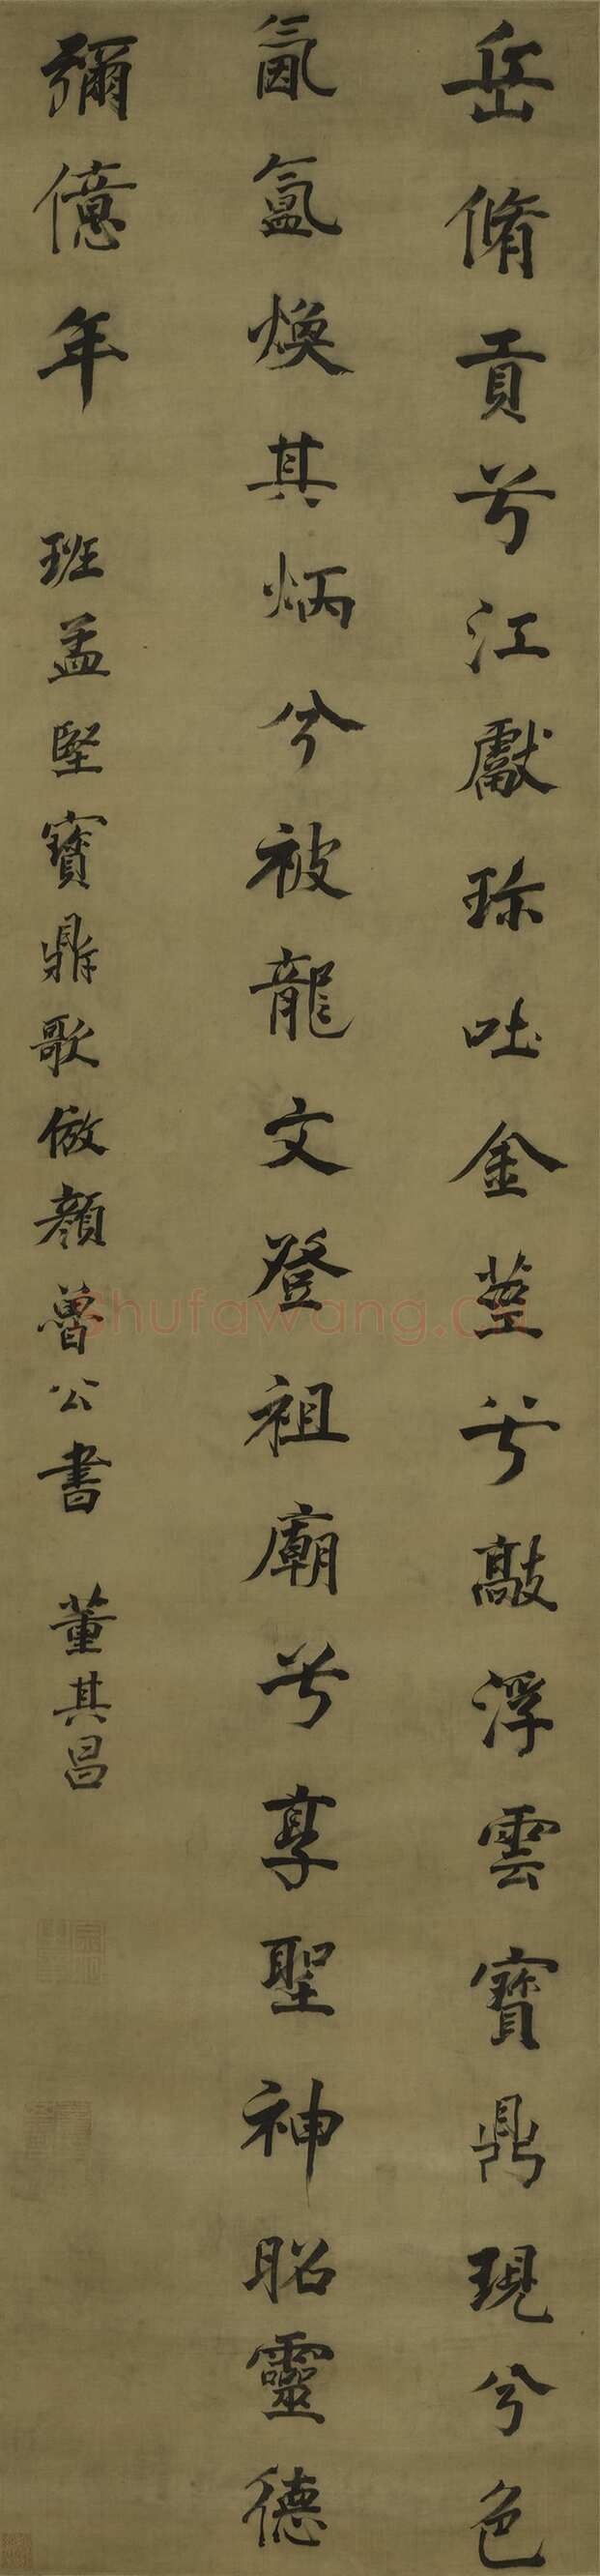 岳脩貢兮江獻珎吐金莖兮敲浮雲寶鼎現兮色
氤氳煥其炳兮被龍文登祖廟兮享聖神昭靈德
彌億年 班孟堅寶鼎歌倣顏魯公書 董其昌
shufawang.cn